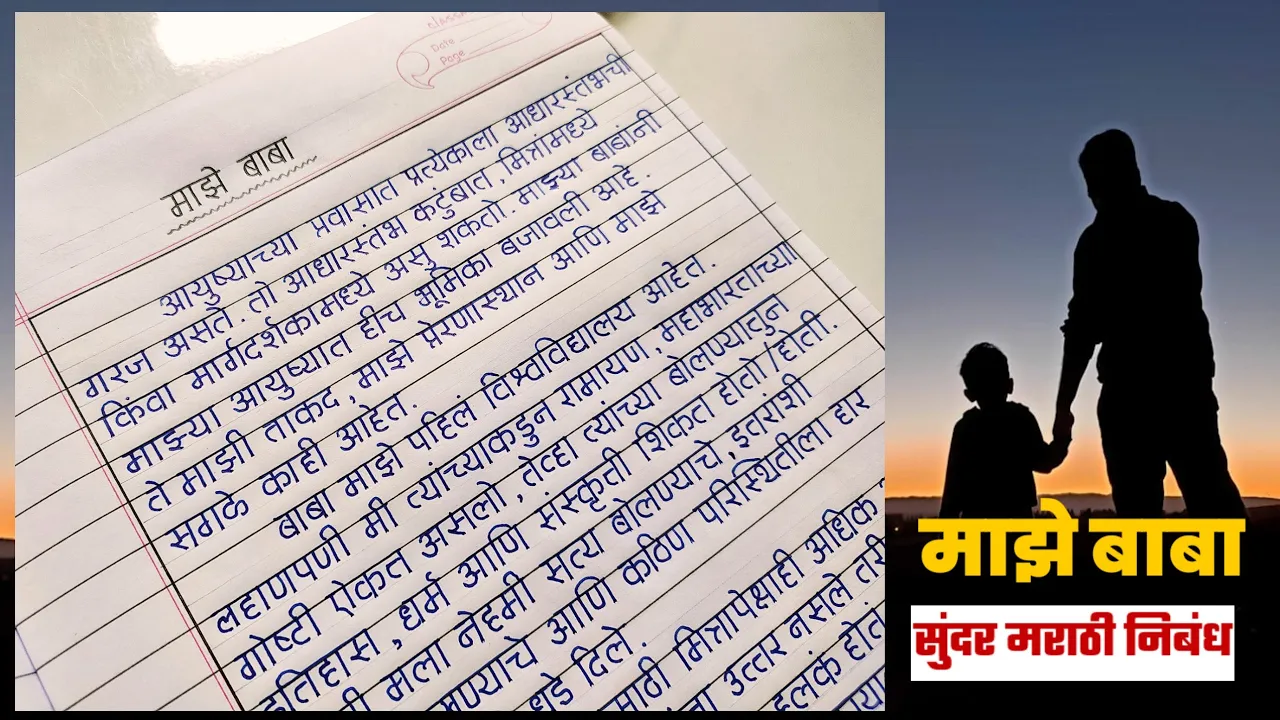 Date
Page
माझे बाबा
आयुष्याच्या प्रवासात प्रत्येकाला आधारस्तंभची
गरज असते. तो आधारस्तंभ कटुंबात, मित्रांमध्ये
किंवा मार्गदर्शकामध्ये असु शकतो. माझ्या बाबांनी
माझ्या आयुष्यात हीच भूमिका बजावली आहे.
ते माझी ताकद, माझे प्रेरणास्थान आणि माझे
सगळे काही आहेत.
बाबा माझे पहिलं विश्वविद्यालय आहेत.
लहाणपणी मी त्यांच्याकडुन रामायण, महाभारताच्या
गोष्टी ऐकत असलो, तेव्हा त्यांच्या बोलण्यातुन
इतिहास, धर्म आणि संस्कृती शिकत होतो/होती.
मला नेहमी सत्य बोलण्याचे, इतरांशी
आणि कठिण परिस्थितीला हार
धडे दिले.
मित्रापेक्षाही अधिक
उत्तर नसले तरी
हलकं होतं
माझे बाबा
सुंदर मराठी निबंध